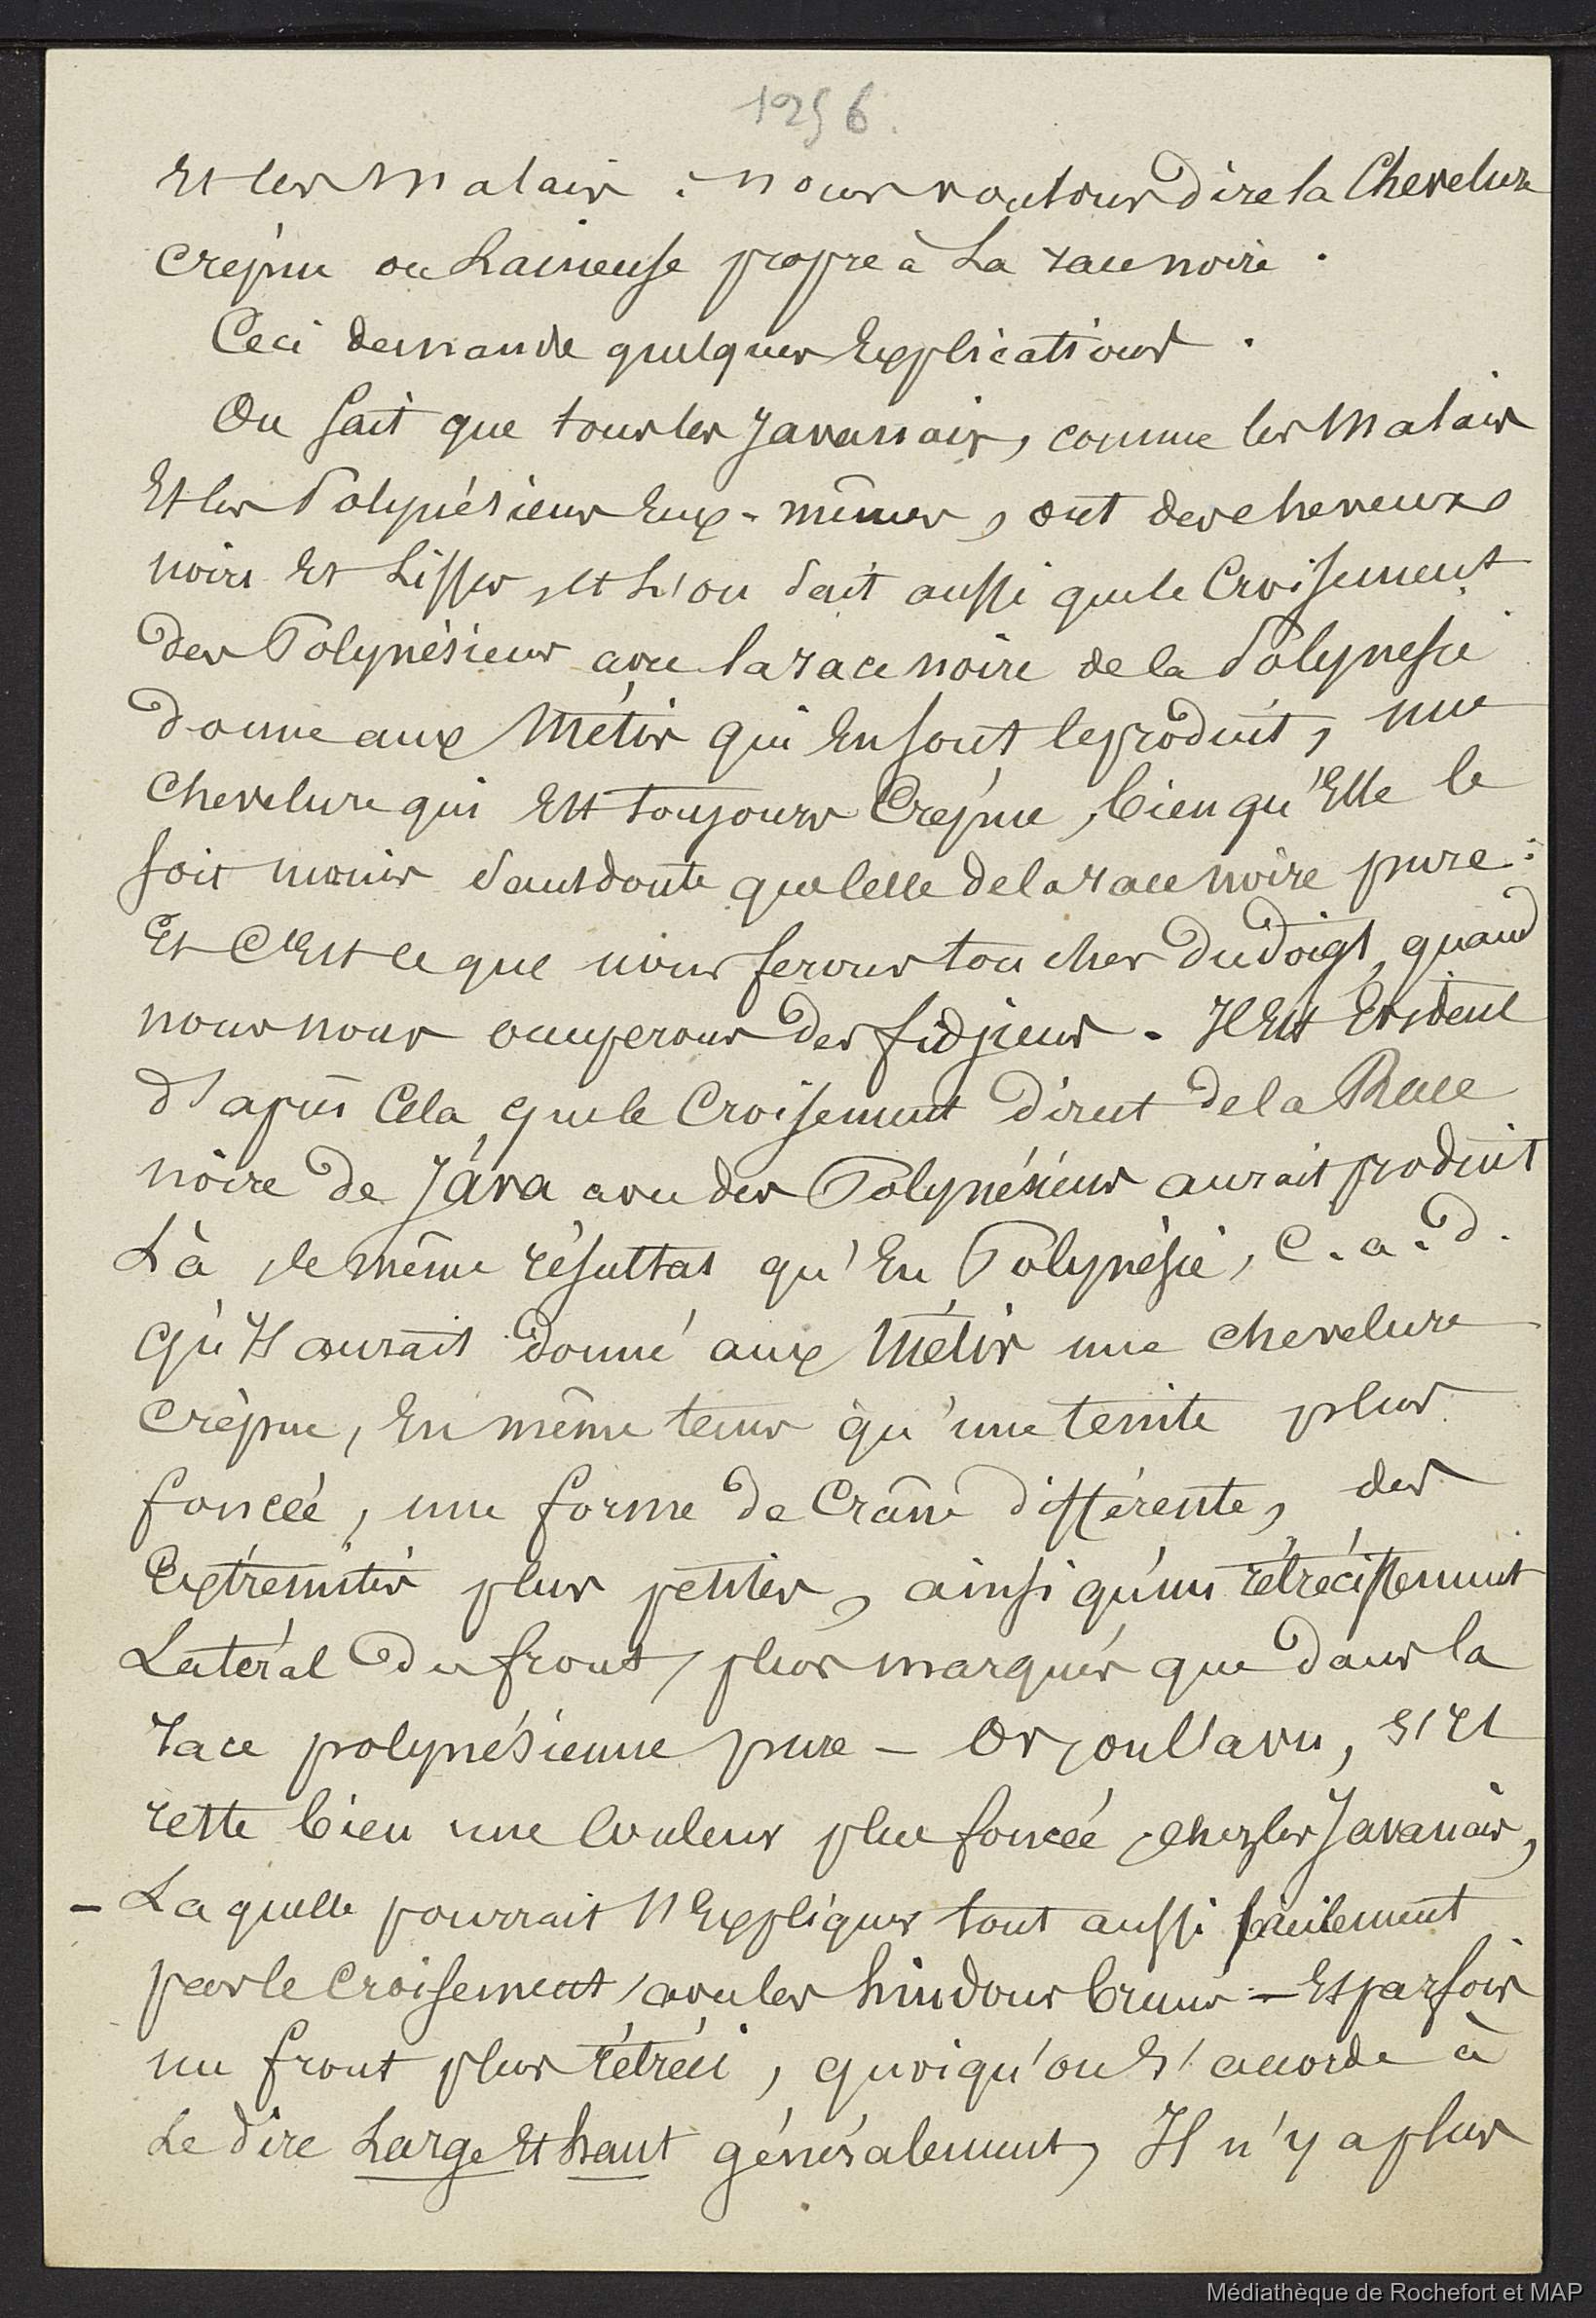 1256.
Et les Malais : nous voulons dire la Chevelure
crépue ou Laineuse propre à La race noire.
Ceci demande quelques Explications.
On sait que tous les Javanais, comme les Malais
Et les Polynésiens Eux-mêmes, ont des cheveux
noirs Et Lisses, Et L'on sait aussi que le Croisement
des Polynésiens avec la race noire de la Polynesie
donne aux Métis qui En sont le produit, une
Chevelure qui Est toujours Crépue, bien qu'Elle le
soit moins sans doute que celle de la race noire pure :
Et C'Est ce que nous ferons toucher du doigt, quand
nous nous occuperons des fidjiens. Il Est Evident
d'après Cela que le Croisement direct de la Race
noire de Java avec des Polynésiens aurait produit
Là le même résultat qu'En Polynésie, C.a.d.
qu'Il aurait donné aux Métis une chevelure
crépue, En même tems qu'une teinte plus
foncée, une forme de Crâne différente, des
Extrémités plus petites, ainsi qu'un rétrécissement
Latéral du front, plus marqués que dans la
race polynésienne pure — Or, on l'a vu, s'il
reste bien une Couleur plus foncée chez les Javanais,
— La quelle pourrait s'Expliquer tout aussi facilement
par le Croisement avec les hindous bruns — Et parfois
un front plus rétréci, quoiqu'on s'accorde à
Le dire Large Et haut généralement, Il n'y a plus
Médiathèque de Rochefort et MAP